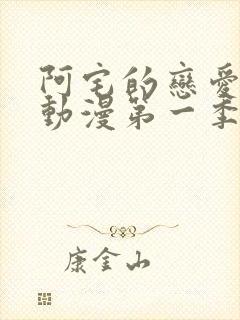 阿宅的戀愛
動漫第一季
康金山